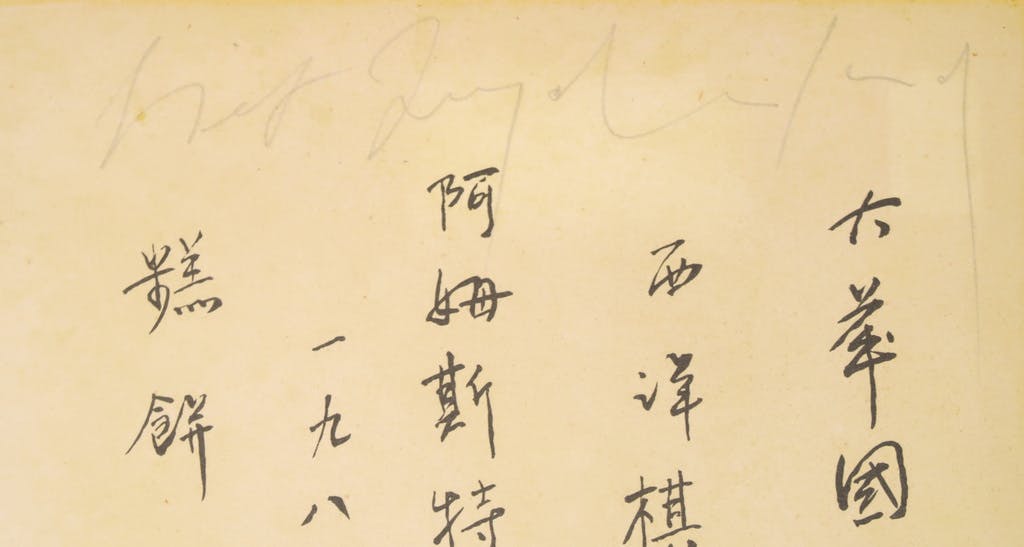 大華國
西洋棋
阿姆斯特
一九八
糕餅